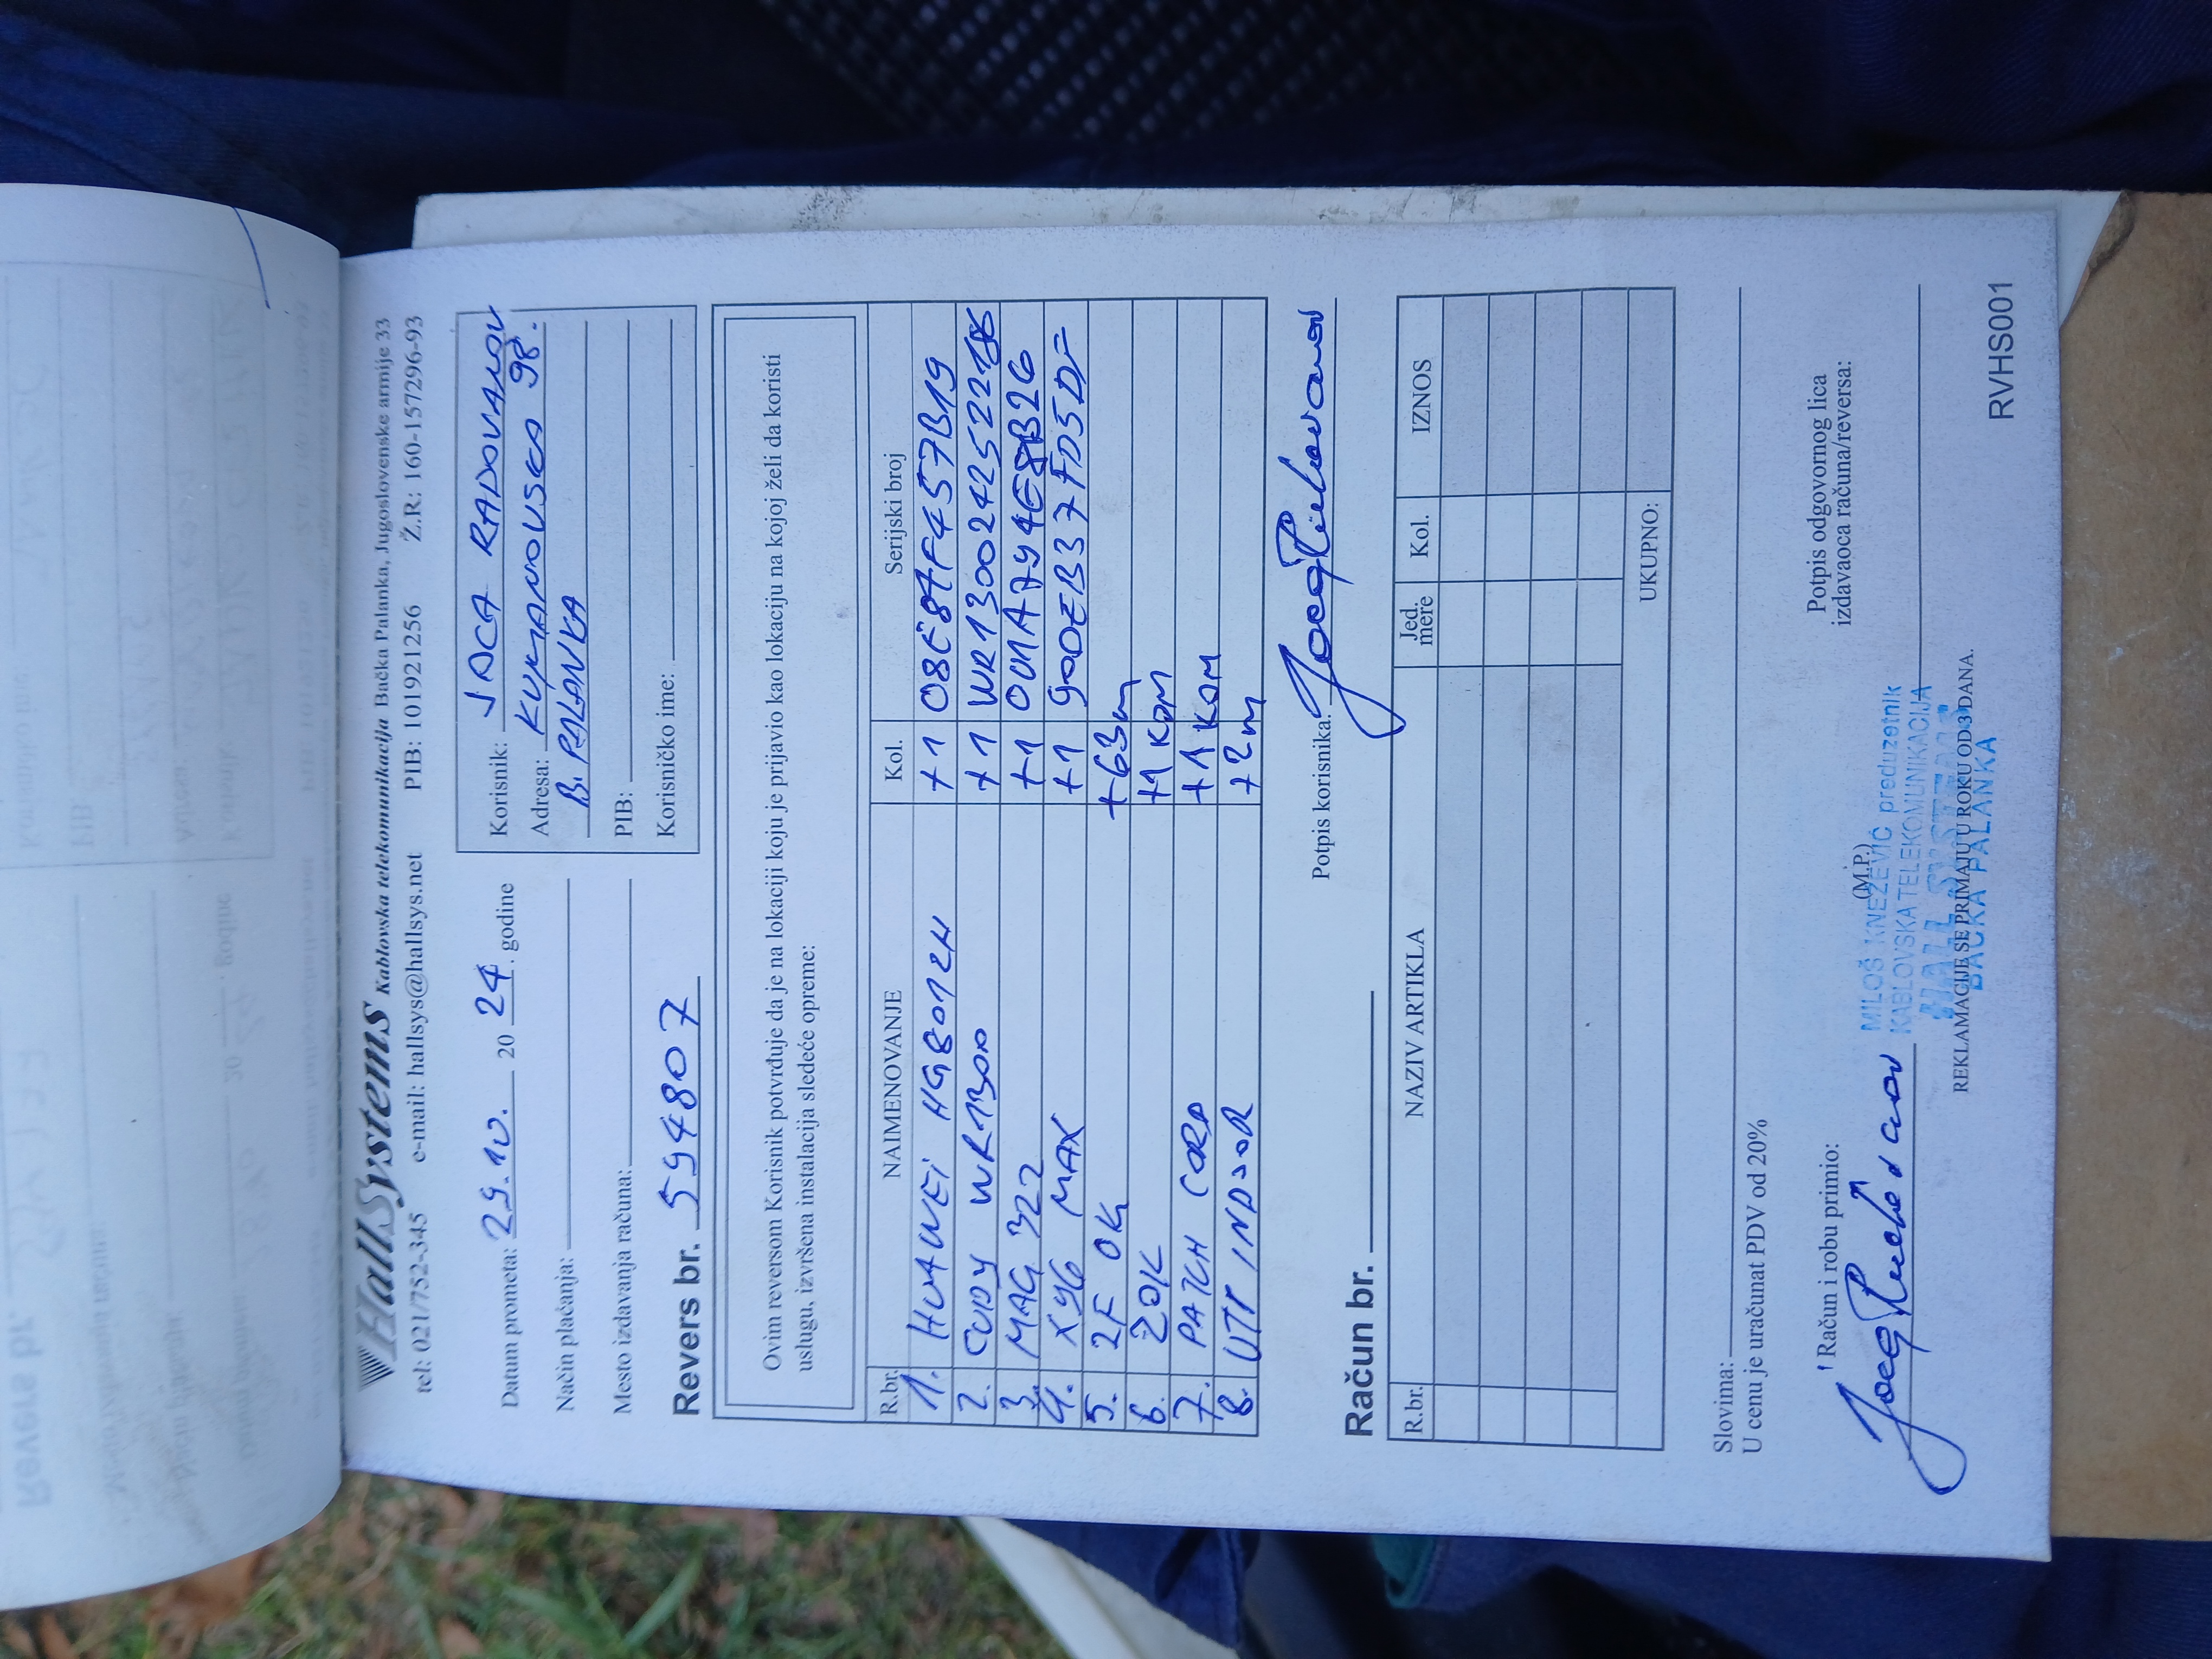 HallSystems Kablovska telekomunikacija Bačka Palanka, Jugoslovenske armije 33
tel: 021/752-345 e-mail: hallsys@hallsys.net PIB: 101921256 Ž.R: 160-157296-93
Datum prometa: 29.10. 20 24. godine
Način plaćanja:
Mesto izdavanja računa:
Revers br. 594807
Korisnik: JACA RADOVANOV
Adresa: KUMANOVSKA 98.
B. PALANKA
PIB:
Korisničko ime:
Ovim reversom Korisnik potvrđuje da je na lokaciji koju je prijavio kao lokaciju na kojoj želi da koristi
uslugu, izvršena instalacija sledeće opreme:
R.br. NAIMENOVANJE Kol. Serijski broj
1. HUAWEI HG8012H +1
2. CUDY WR1300 +1
3. MAG 322 +1
4. X96 MAX +1
5. 2F OK +63m
6. ZOK +1 KOM
7. PATCH CORD +1 KOM
8. UTP INDOOR +2m
Potpis korisnika:
Račun br.
R.br. NAZIV ARTIKLA Jed. mere Kol. IZNOS
UKUPNO:
Slovima:
U cenu je uračunat PDV od 20%
Račun i robu primio:
(M.P.)
Potpis odgovornog lica
izdavaoca računa/reversa:
MILOŠ KNEŽEVIĆ preduzetnik
KABLOVSKA TELEKOMUNIKACIJA
HALL SYSTEMS
BAČKA PALANKA
REKLAMACIJE SE PRIMAJU U ROKU OD 3 DANA.
RVHS001